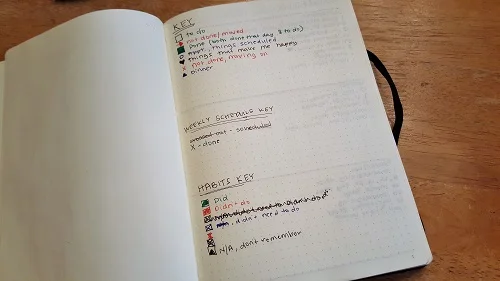 KEY
to do
not done/moved
Done (both done that day, & to do)
appt, things scheduled
things that make me happy
X not done, moving on
Dinner
WEEKLY SCHEDULE KEY
- scheduled
X - done
HABITS KEY
Did
Didn't do
, didn't need to do
N/A, don't remember